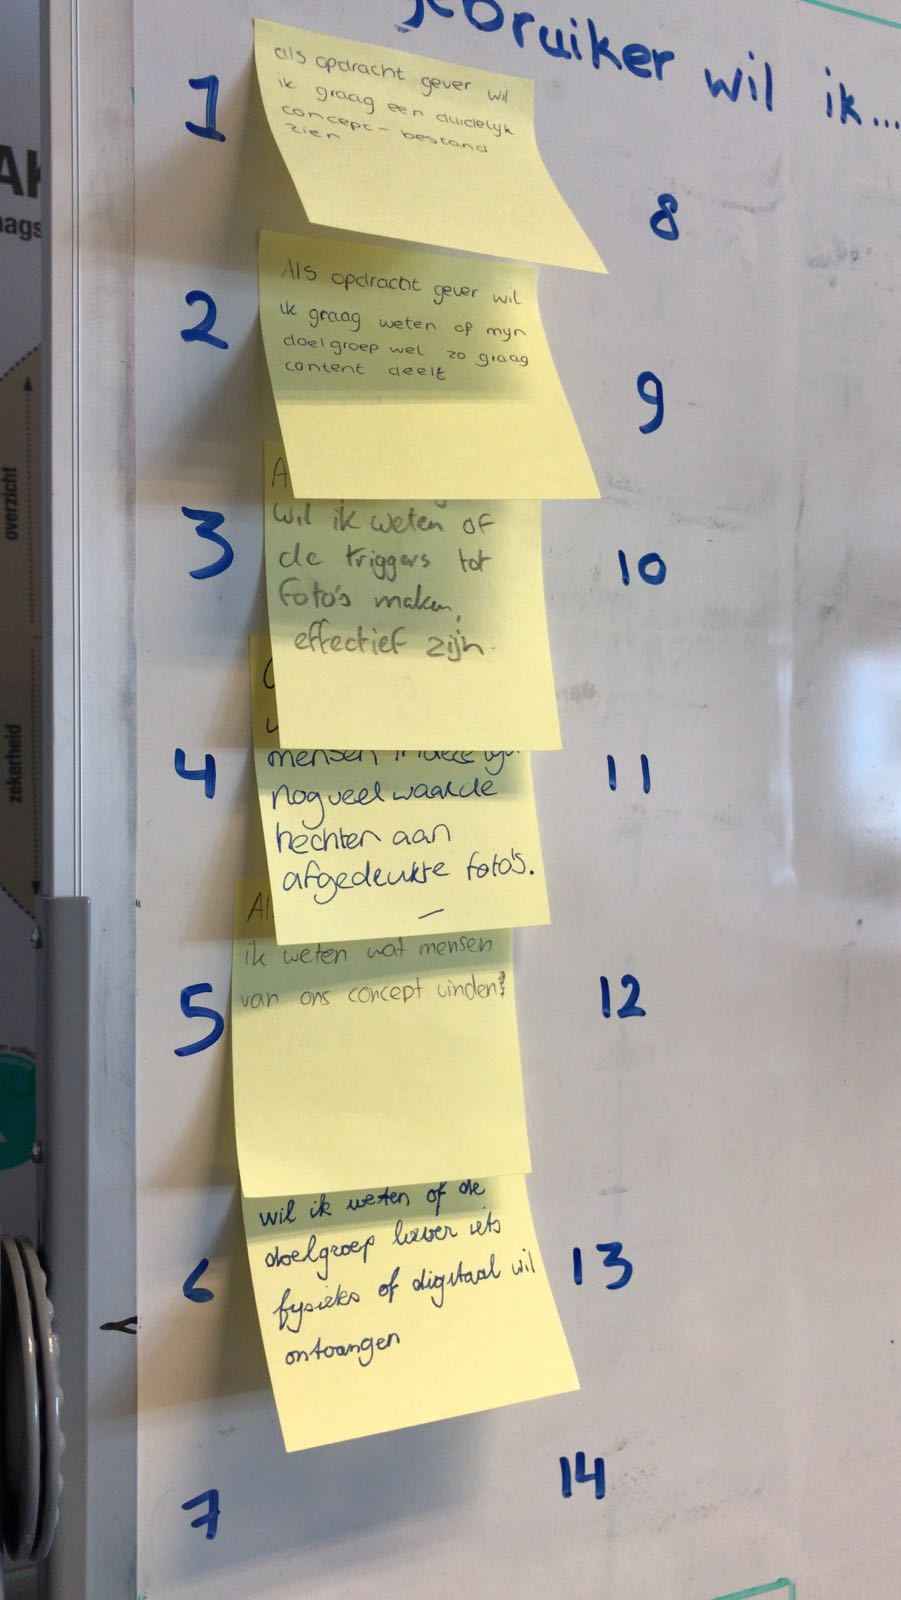 gebruiker wil ik...
1
als opdracht gever wil
ik graag een duidelyk
concept - bestand
zien
2
Als opdracht gever wil
ik graag weten of myn
doelgroep wel zo graag
content deelt
3
wil ik weten of
de triggers tot
foto's maken,
effectief zijn.
4
mensen
nog veel waarde
hechten aan
afgedrukte foto's.
5
ik weten wat mensen
van ons concept vinden!
6
wil ik weten of de
doelgroep liever iets
fysieks of digitaal wil
ontvangen
7
8
9
10
11
12
13
14
overzicht
zekerheid